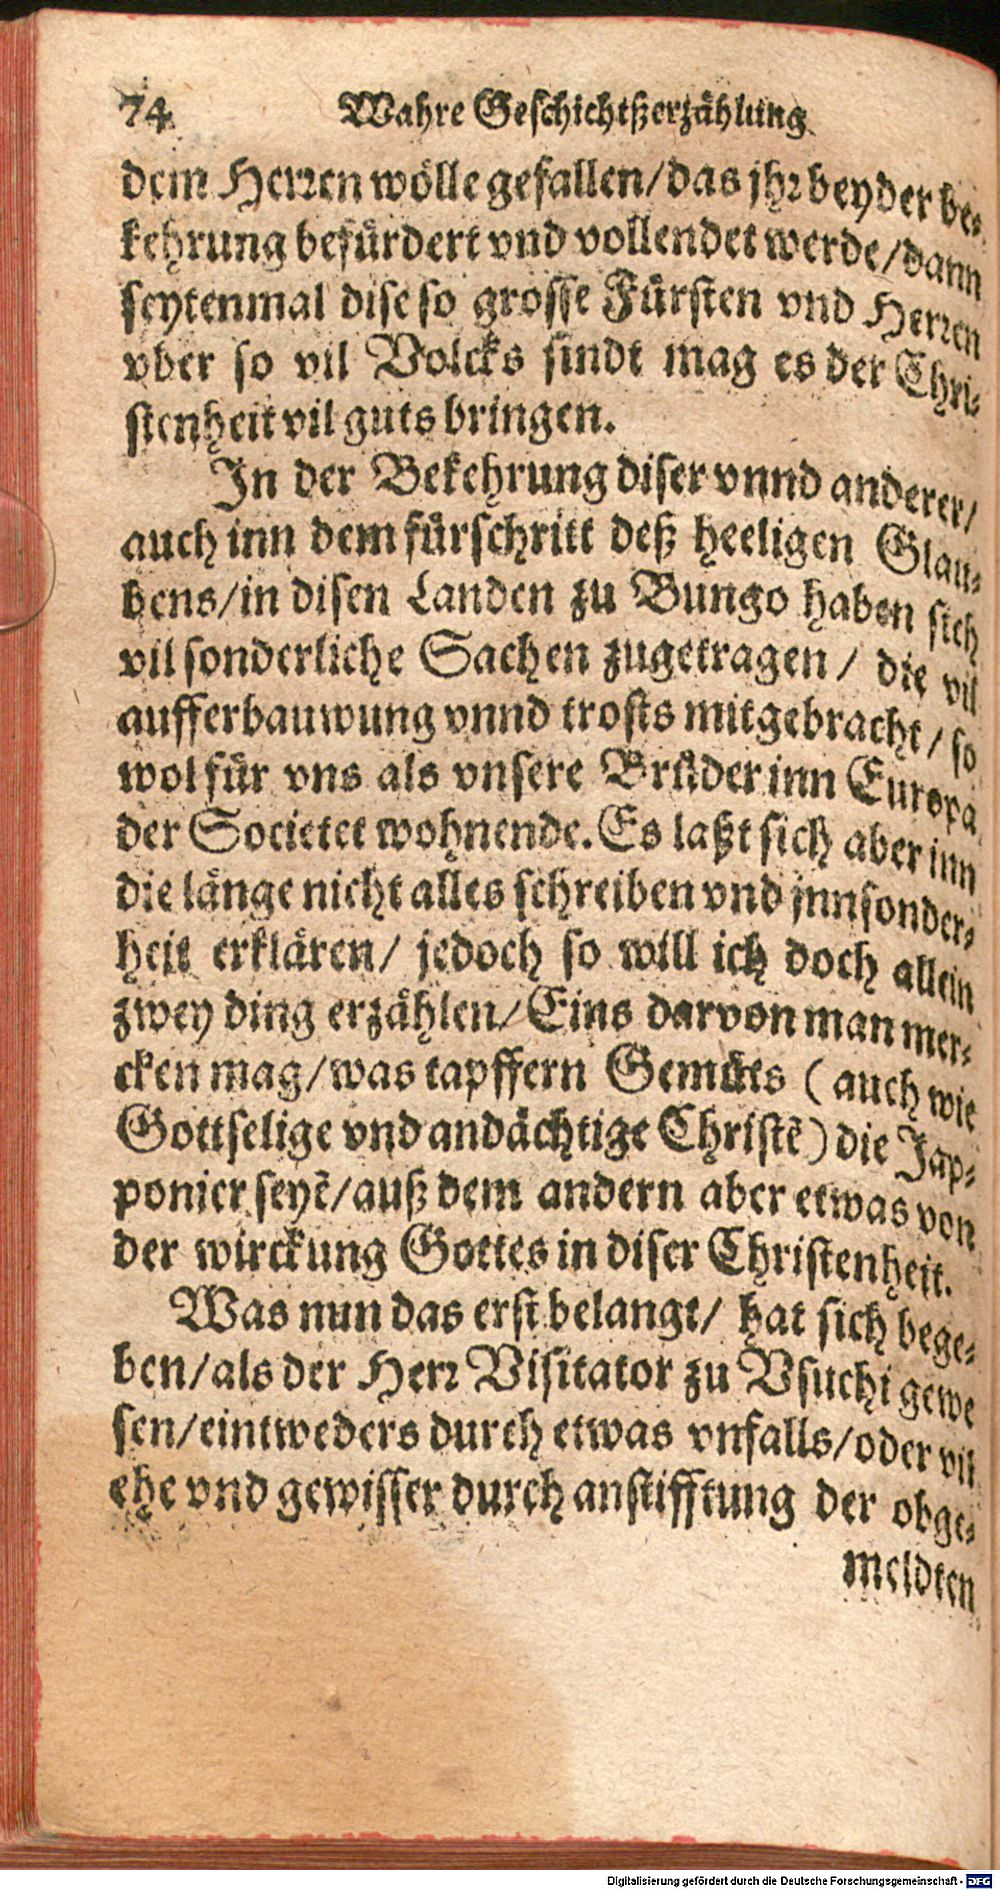 74 Wahre Geschichtßerzählung
dem Herren wölle gefallen/das jhr beyder be-
kehrung befürdert vnd vollendet werde/dann
seytenmal dise so grosse Fürsten vnd Herren
vber so vil Volcks sindt mag es der Chri-
stenheit vil guts bringen.
In der Bekehrung diser vnnd anderer/
auch inn dem fürschritt deß heeligen Glau-
bens/in disen Landen zu Bungo haben sich
vil sonderliche Sachen zugetragen/ die vil
aufferbauwung vnnd trosts mitgebracht/so
wol für vns als vnsere Brůder inn Europa
der Societet wohnende. Es laßt sich aber inn
die länge nicht alles schreiben vnd jnnsonder-
heit erklären/ jedoch so will ich doch allein
zwey ding erzählen/Eins darvon man mer-
cken mag/was tapffern Gemůts (auch wie
Gottselige vnd andächtige Christẽ) die Jap-
ponier seyẽ/auß dem andern aber etwas von
der wirckung Gottes in diser Christenheit.
Was nun das erst belangt/ hat sich bege-
ben/als der Herr Visitator zu Vsuchi gewe
sen/eintweders durch etwas vnfalls/oder vil
ehe vnd gewisser durch anstifftung der obge-
meldten
Digitalisierung gefördert durch die Deutsche Forschungsgemeinschaft - DFG